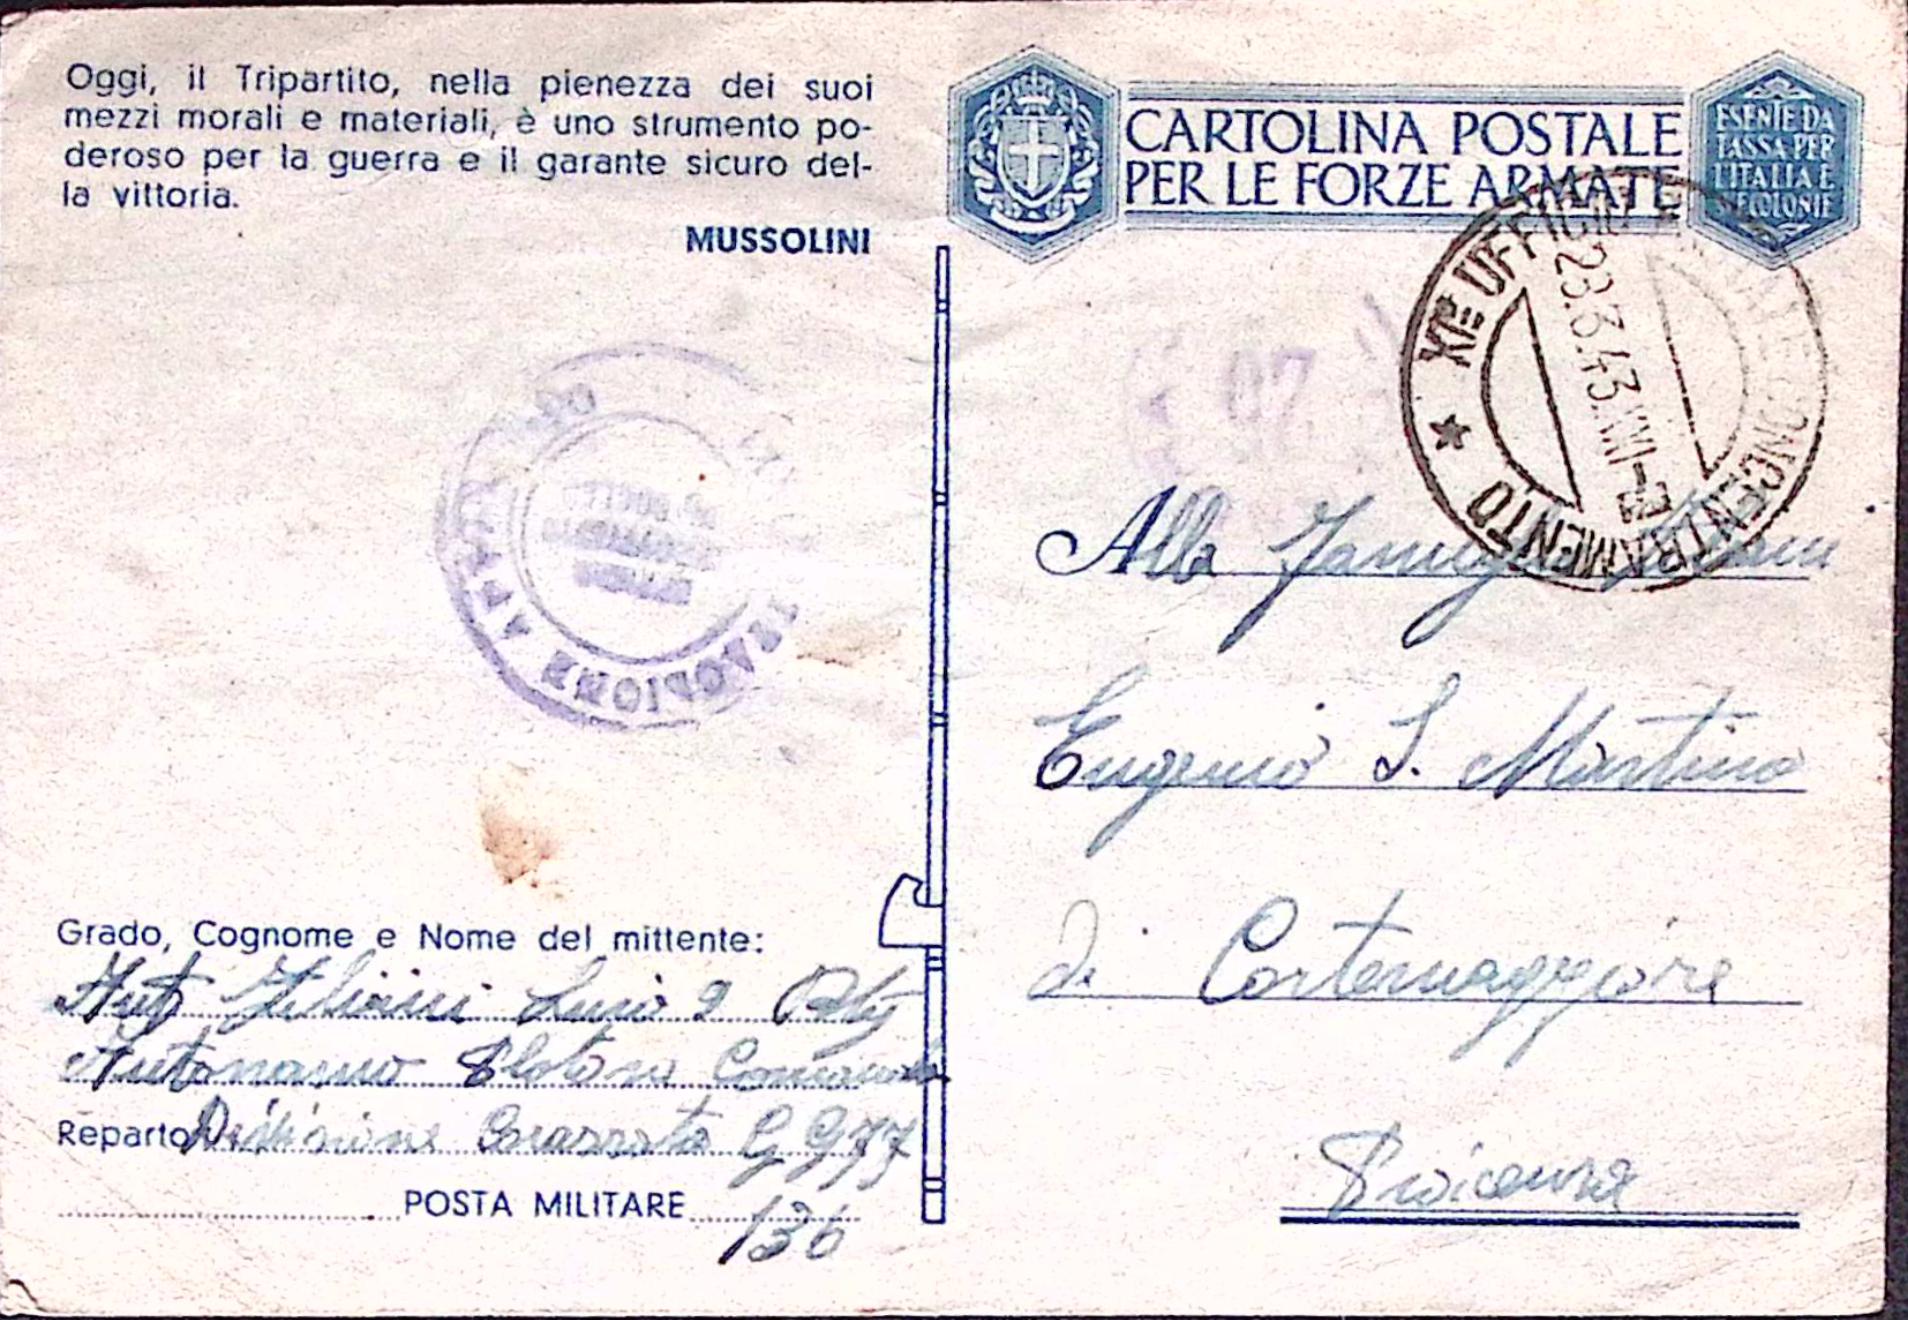 Oggi, il Tripartito, nella pienezza dei suoi
mezzi morali e materiali, è uno strumento po-
deroso per la guerra e il garante sicuro del-
la vittoria.
MUSSOLINI
CARTOLINA POSTALE
PER LE FORZE ARMATE
ESENTE DA
TASSA PER
L'ITALIA E
SUE COLONIE
XI° UFFICIO CONCENTRAMENTO
28.3.43.XXI
Alla Famiglia
Eugenio S. Martino
di Cortemaggiore
Piacenza
Grado, Cognome e Nome del mittente:
Aut
Autonomo Plotone Comando
Reparto Divisione Corazzata G G 77
POSTA MILITARE 136